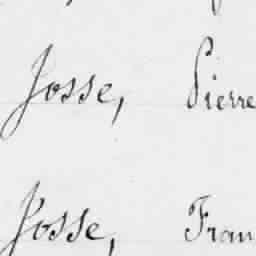 Josse, Pierre
Josse, Fran